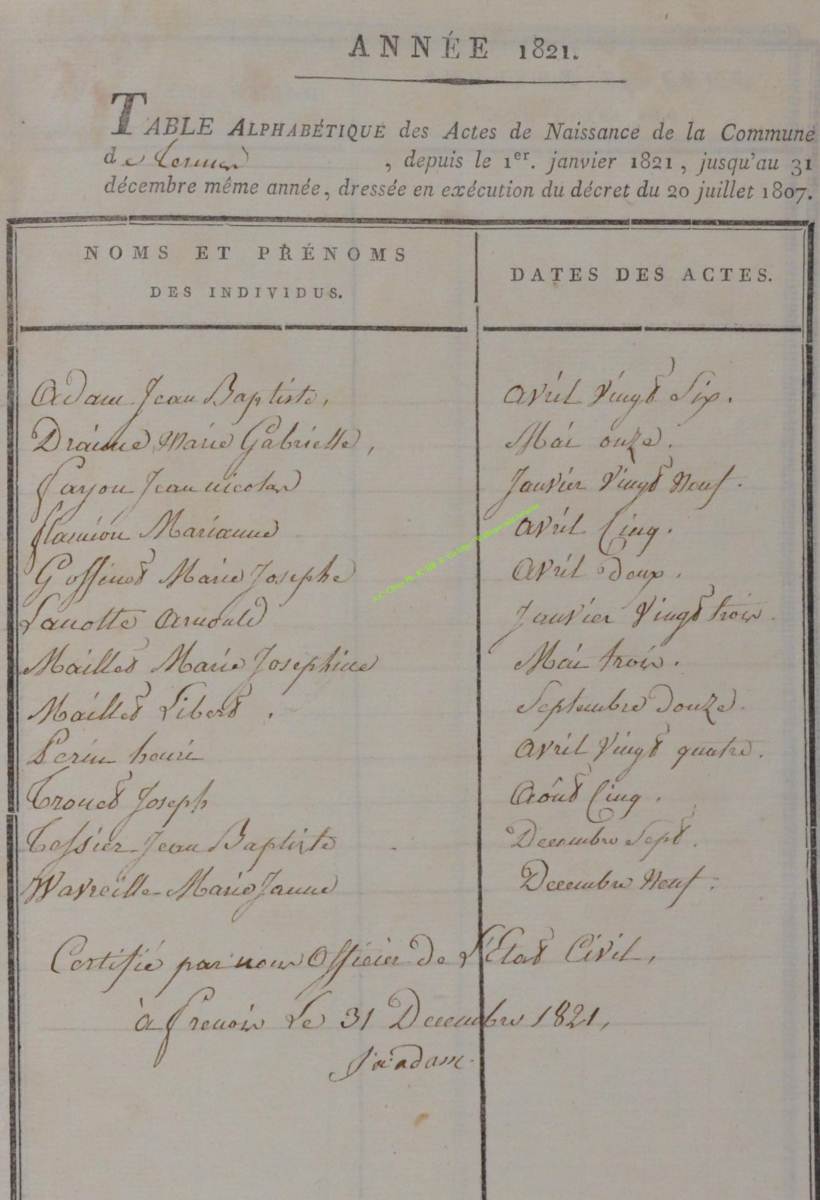 ANNÉE 1821.
TABLE ALPHABÉTIQUE des Actes de Naissance de la Commune
de , depuis le 1er. janvier 1821, jusqu'au 31
décembre même année, dressée en exécution du décret du 20 juillet 1807.
NOMS ET PRÉNOMS
DES INDIVIDUS.
DATES DES ACTES.
Adam Jean Baptiste, Avril Vingt Six.
Marie Gabrielle, Mai onze.
Fayon Jean nicolas Janvier Vingt Neuf.
Flamion Marianne Avril Cinq.
Goffinet Marie Josephe Avril Deux.
Lanotte Arnould Janvier Vingt trois.
Maillet Marie Josephine Mai trois.
Maillet Libert. Septembre Douze.
Perin henri Avril Vingt quatre.
Joseph Août Cinq.
Tessier Jean Baptiste Decembre Sept.
Wavreille Marie Janne Decembre Neuf.
Certifié par nous Officier De L'Etat Civil,
à frenois Le 31 Decembre 1821,